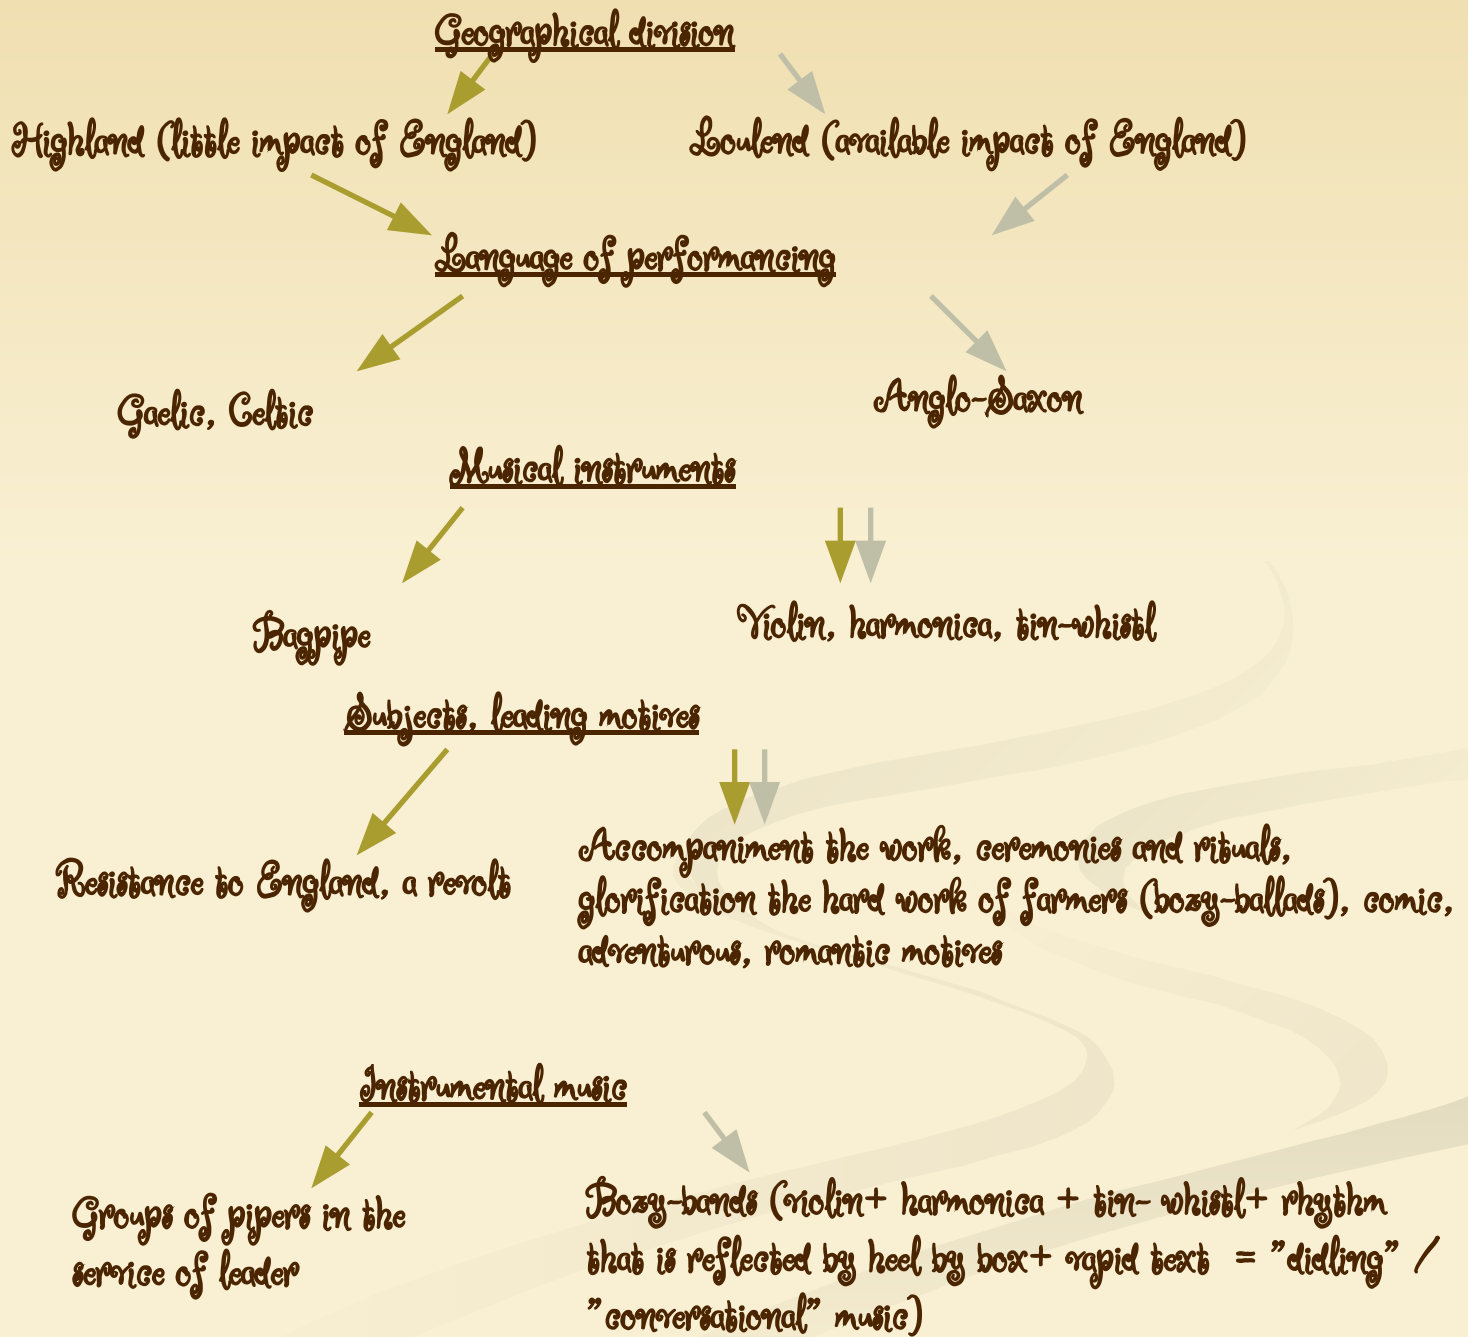 Geographical division
Highland (little impact of England)
Loulend (available impact of England)
Language of performancing
Gaelic, Celtic
Anglo-Saxon
Musical instruments
Bagpipe
Violin, harmonica, tin-whistl
Subjects, leading motives
Resistance to England, a revolt
Accompaniment the work, ceremonies and rituals,
glorification the hard work of farmers (bozy-ballads), comic,
adventurous, romantic motives
Instrumental music
Groups of pipers in the
service of leader
Bozy-bands (violin+ harmonica + tin- whistl+ rhythm
that is reflected by heel by box+ rapid text = "didling" /
"conversational" music)